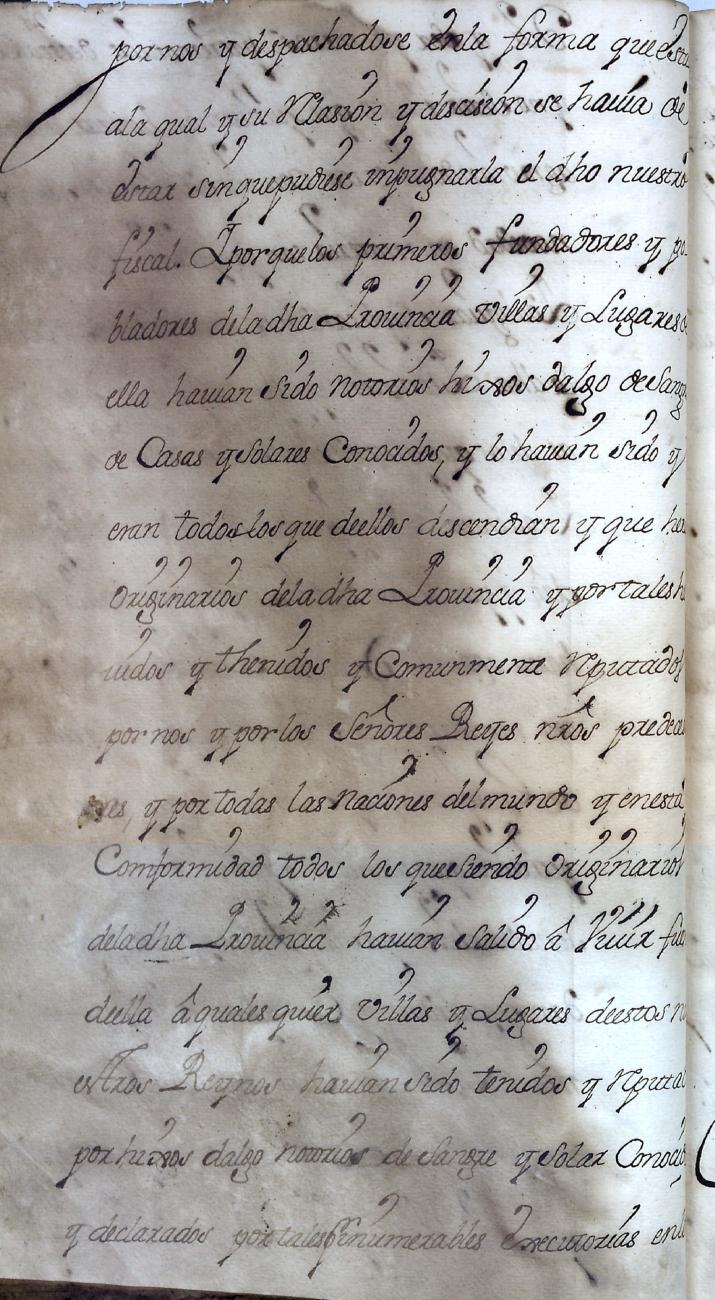 por nos y despachadose enla forma que
ala qual y su Relasion y descision se havia de
estar sin que pudiese inpugnarla el dho nuestro
fiscal. Y porque los primeros fundadores y po
bladores deladha Provincia Villas y Lugares
ella havian sido notorios hixos dalgo de Sang
de Casas y Solares Conocidos, y lo havian sido y
eran todos los que deellos descendian y que
Originarios deladha Provincia y por tales h
vidos y thenidos y Comunmente Reputados
por nos y por los Señores Reyes nrõs predec
res, y por todas las naciones del mundo y enesta
Comformidad todos los que siendo Originarios
deladha Provincia havian Salido â Vivir fue
deella â quales quier Villas y Lugares deestos n
estros Reynos havian sido tenidos y Reputa
por hixos dalgo notorios de Sangre y Solar Conoci
y declarados por tales Ynumerables Executorias en